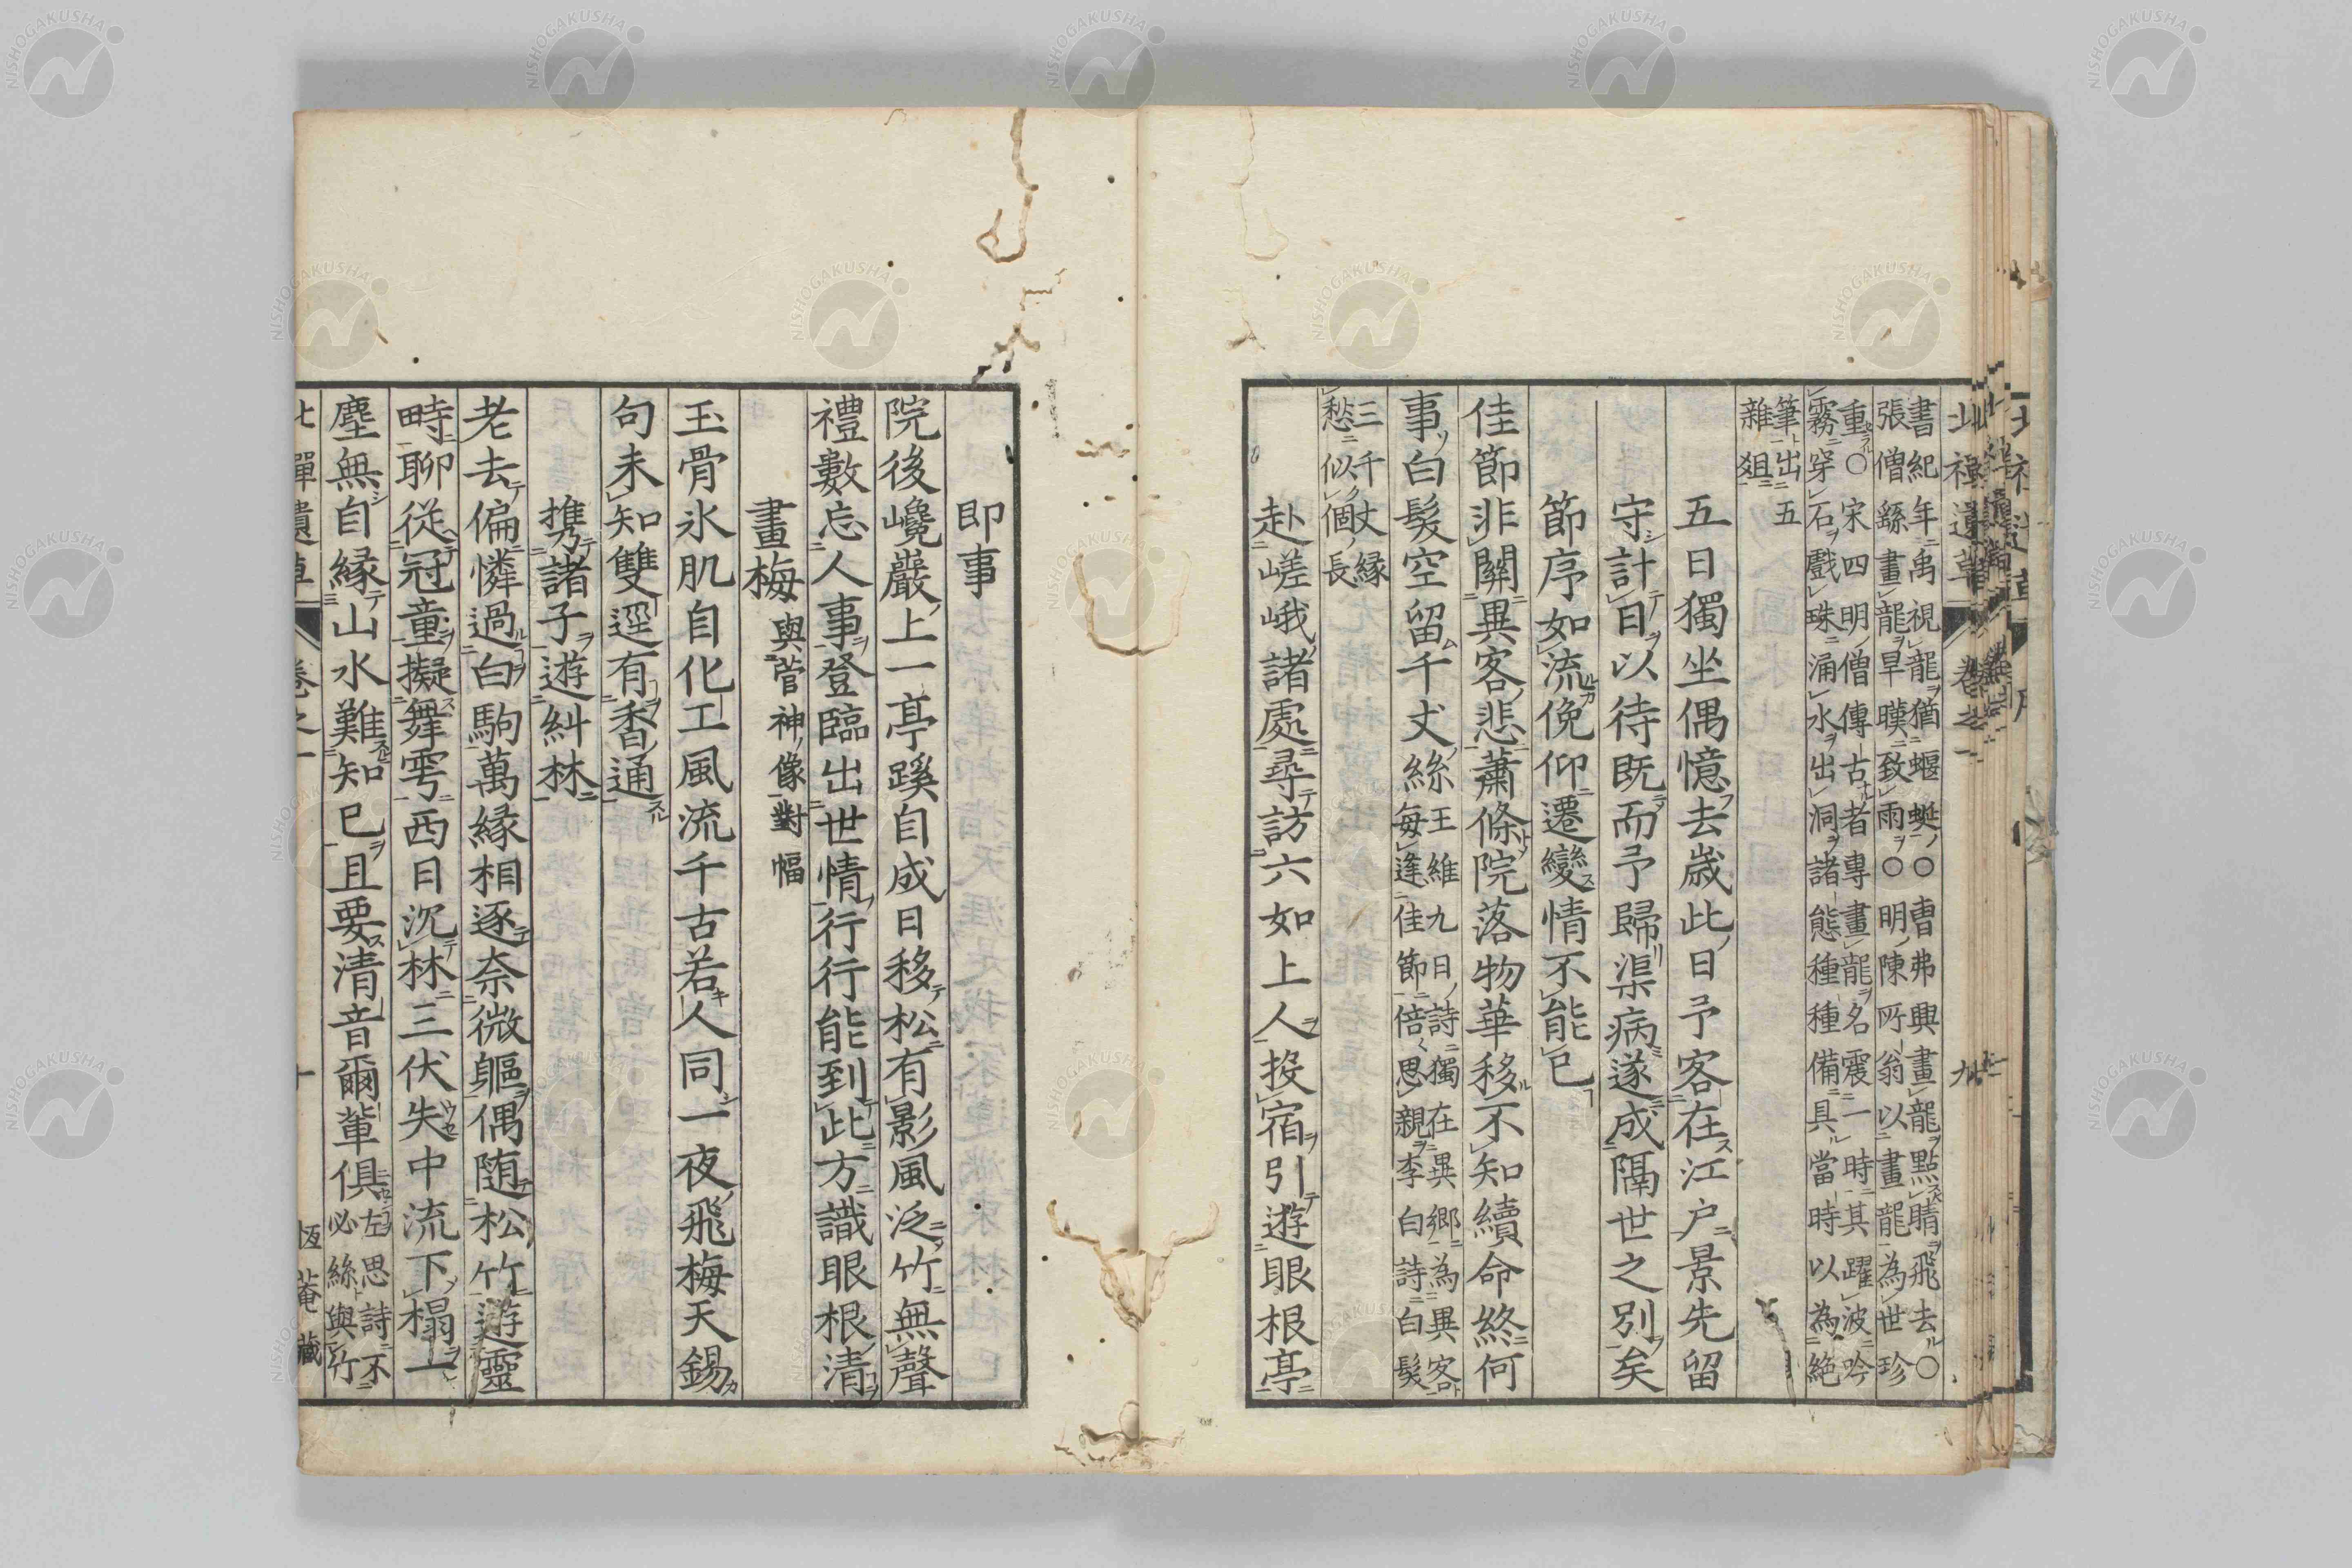 北禪遺草 卷之一 九
書紀年禹視龍猶蝘蜓○曹弗興畫龍點睛飛去○
張僧繇畫龍旱暵致雨○明陳所翁以畫龍為世珍
重○宋四明僧傳古者專畫龍名震一時其躍波吟
霧穿石戲珠涌水出洞諸態種種備具當時以為絕
筆出五
雜俎
五日獨坐偶憶去歲此日予客在江戶景先留
守計日以待既而予歸渠病遂成隔世之別矣
節序如流俛仰遷變情不能已
佳節非關異客悲蕭條院落物華移不知續命終何
事白髮空留千丈絲王維九日詩獨在異鄉為異客
每逢佳節倍思親李白詩白髮
三千丈緣
愁似個長
赴嵯峨諸處尋訪六如上人投宿引遊眼根亭
即事
院後巉巖上一亭蹊自成日移松有影風泛竹無聲
禮數忘人事登臨出世情行行能到此方識眼根清
畫梅與菅神像對幅
玉骨氷肌自化工風流千古若人同一夜飛梅天錫
句未知雙逕有香通
携諸子遊糾林
老去偏憐過白駒萬緣相逐奈微軀偶随松竹遊靈
畤聊從冠童擬舞雩西日沉林三伏失中流下榻一
塵無自緣山水難知已且要清音爾輩俱左思詩不
必絲與竹
北禪遺草 卷之一 十
恆菴藏
NISHOGAKUSHA